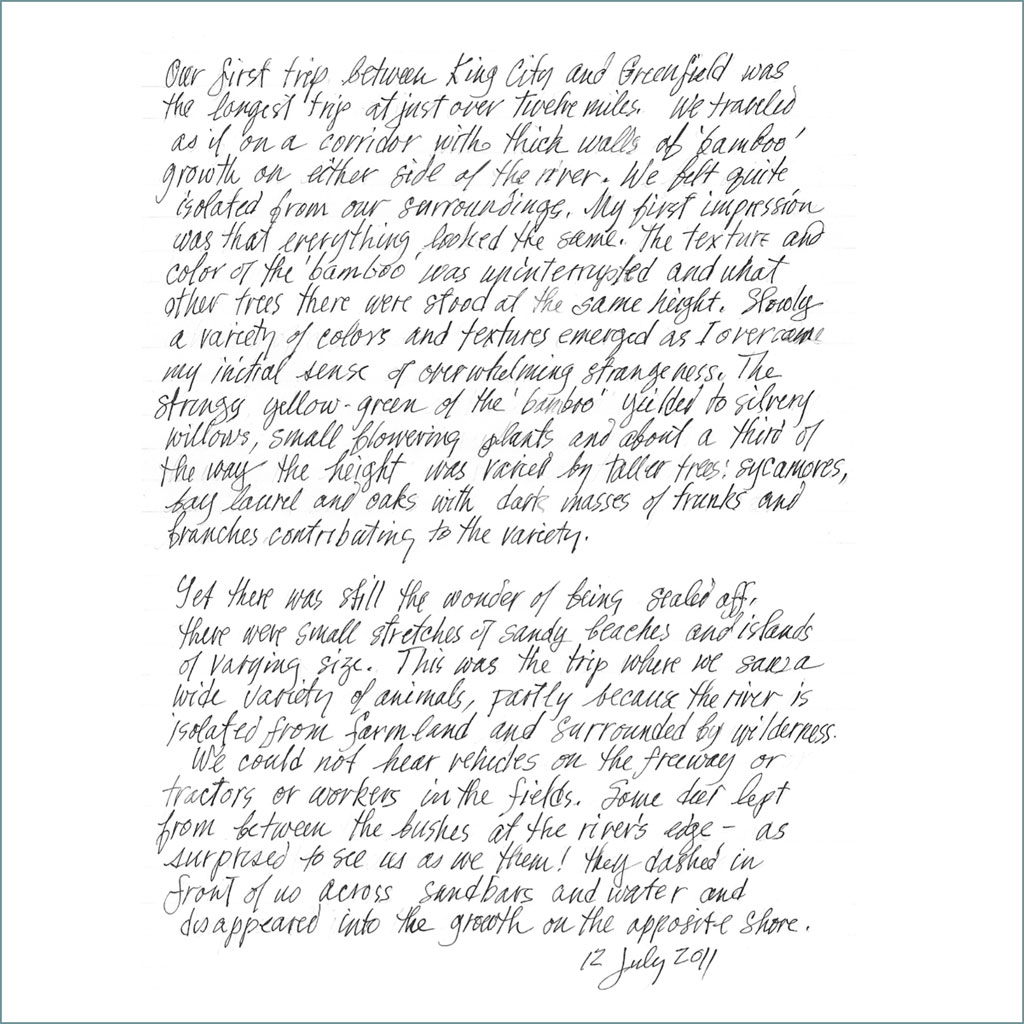 Our first trip between King City and Greenfield was
the longest trip at just over twelve miles. We traveled
as if on a corridor with thick walls of 'bamboo'
growth on either side of the river. We felt quite
isolated from our surroundings. My first impression
was that everything looked the same. The texture and
color of the 'bamboo' was uninterrupted and what
other trees there were stood at the same height. Slowly
a variety of colors and textures emerged as I overcame
my initial sense of overwhelming strangeness. The
stringy yellow-green of the 'bamboo' yielded to silvery
willows, small flowering plants and about a third of
the way the height was varied by taller trees: sycamores,
bay laurel and oaks with dark masses of trunks and
branches contributing to the variety.
Yet there was still the wonder of being sealed off,
there were small stretches of sandy beaches and islands
of varying size. This was the trip where we saw a
wide variety of animals, partly because the river is
isolated from farmland and surrounded by wilderness.
We could not hear vehicles on the freeway or
tractors or workers in the fields. Some deer lept
from between the bushes at the river's edge - as
surprised to see us as we them! they dashed in
front of us across sandbars and water and
disappeared into the growth on the opposite shore.
12 July 2011